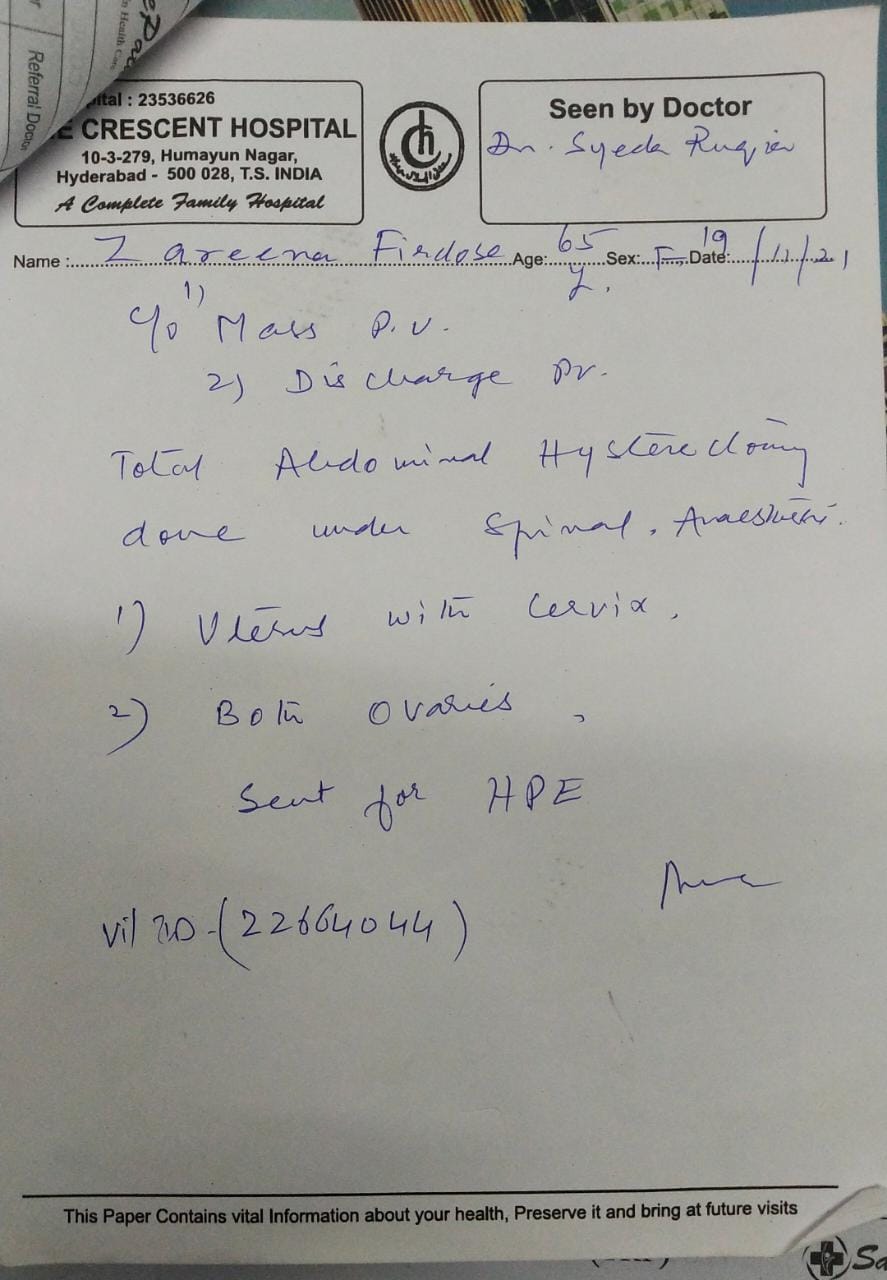 Referral Doctor
ital : 23536626
E CRESCENT HOSPITAL
10-3-279, Humayun Nagar,
Hyderabad - 500 028, T.S. INDIA
A Complete Family Hospital
Seen by Doctor
Dr. Syeda Ruqia
Name : Zareena Firdose Age: 65 y. Sex: F Date: 19/11/21
c/o 1) Mass P.V.
2) Discharge Pv.
Total Abdominal Hysterectomy
done under Spinal. Anaesthesi.
1) Uterus with cervix,
2) Both ovaries,
Sent for HPE
Vil ID-(22664044)
This Paper Contains vital Information about your health, Preserve it and bring at future visits